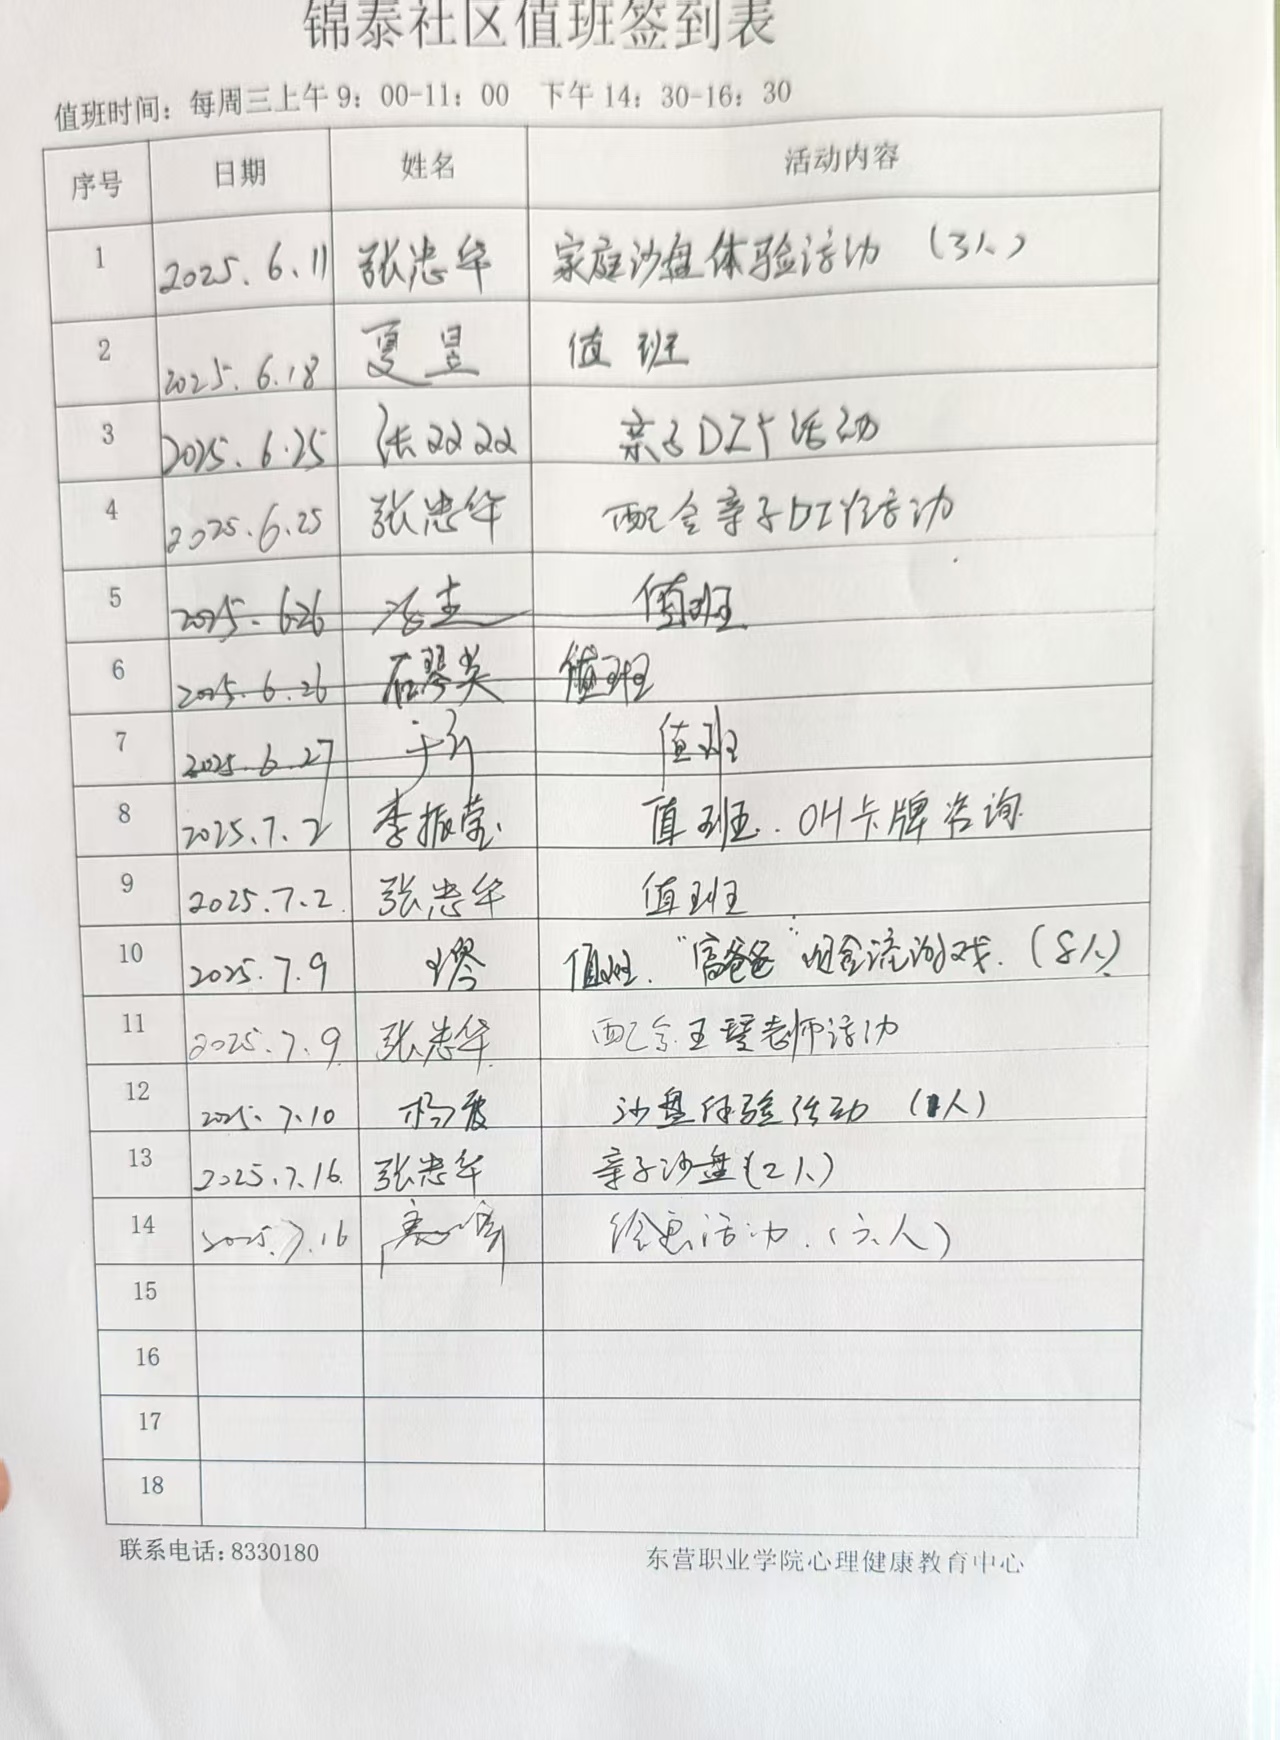 锦泰社区值班签到表
值班时间：每周三上午9：00-11：00 下午14：30-16：30
序号 日期 姓名 活动内容
1 2025.6.11 张忠华 家庭沙盘体验活动（3人）
2 2025.6.18 夏昱 值班
3 2025.6.25 张 亲子DIY活动
4 2025.6.25 张忠华 配合亲子DIY活动
5 2025.6.26 值班
6 2025.6.26 值班
7 2025.6.27 值班
8 2025.7.2 李振莹 值班.OH卡牌咨询
9 2025.7.2 张忠华 值班
10 2025.7.9 值班.“富爸爸”现金流游戏.（8人）
11 2025.7.9 张忠华 配合王老师活动
12 2025.7.10 杨 沙盘体验活动（1人）
13 2025.7.16. 张忠华 亲子沙盘（2人）
14 2025.7.16 绘画活动.（六人）
15
16
17
18
联系电话:8330180 东营职业学院心理健康教育中心